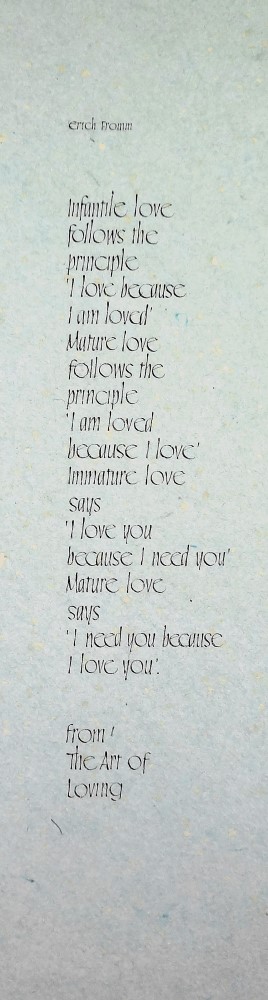 erich fromm
Infantile love
follows the
principle
'I love because
I am loved'
Mature love
follows the
principle
'I am loved
because I love'
Immature love
says
'I love you
because I need you'
Mature love
says
'I need you because
I love you'.
from '
The Art of
Loving